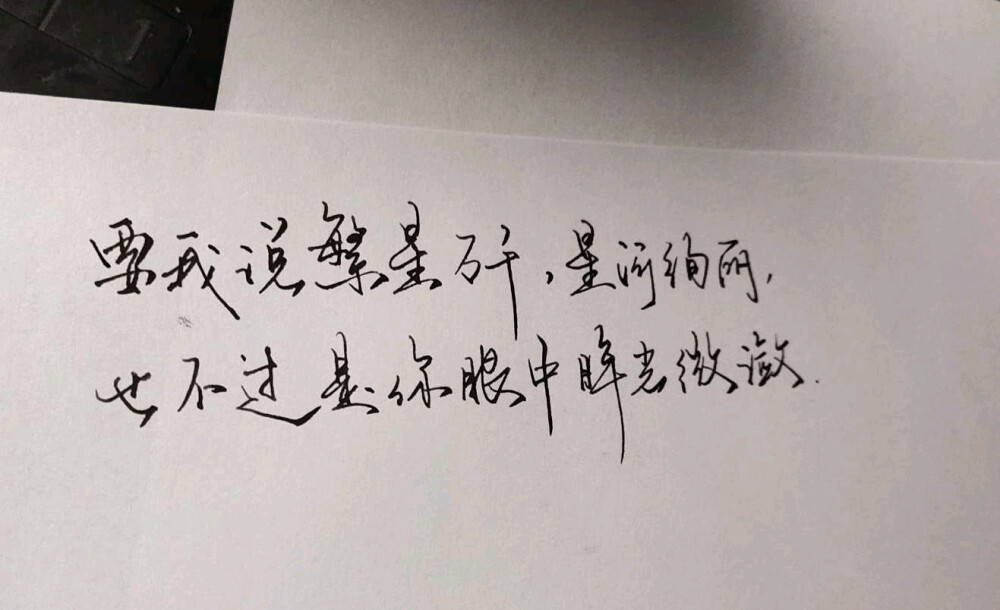 要我说繁星万千,星河绚丽,
也不过是你眼中眸光微潋.